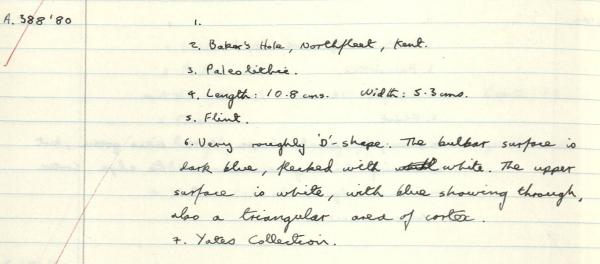 A.388'80
1.
2. Baker's Hole, Northfleet, Kent.
3. Paleolithic.
4. Length: 10.8 cms. Width: 5.3 cms.
5. Flint.
6. Very roughly 'D'-shape. The bulbar surface is
dark blue, flecked with white. The upper
surface is white, with blue showing through,
also a triangular area of cortex.
7. Yates Collection.